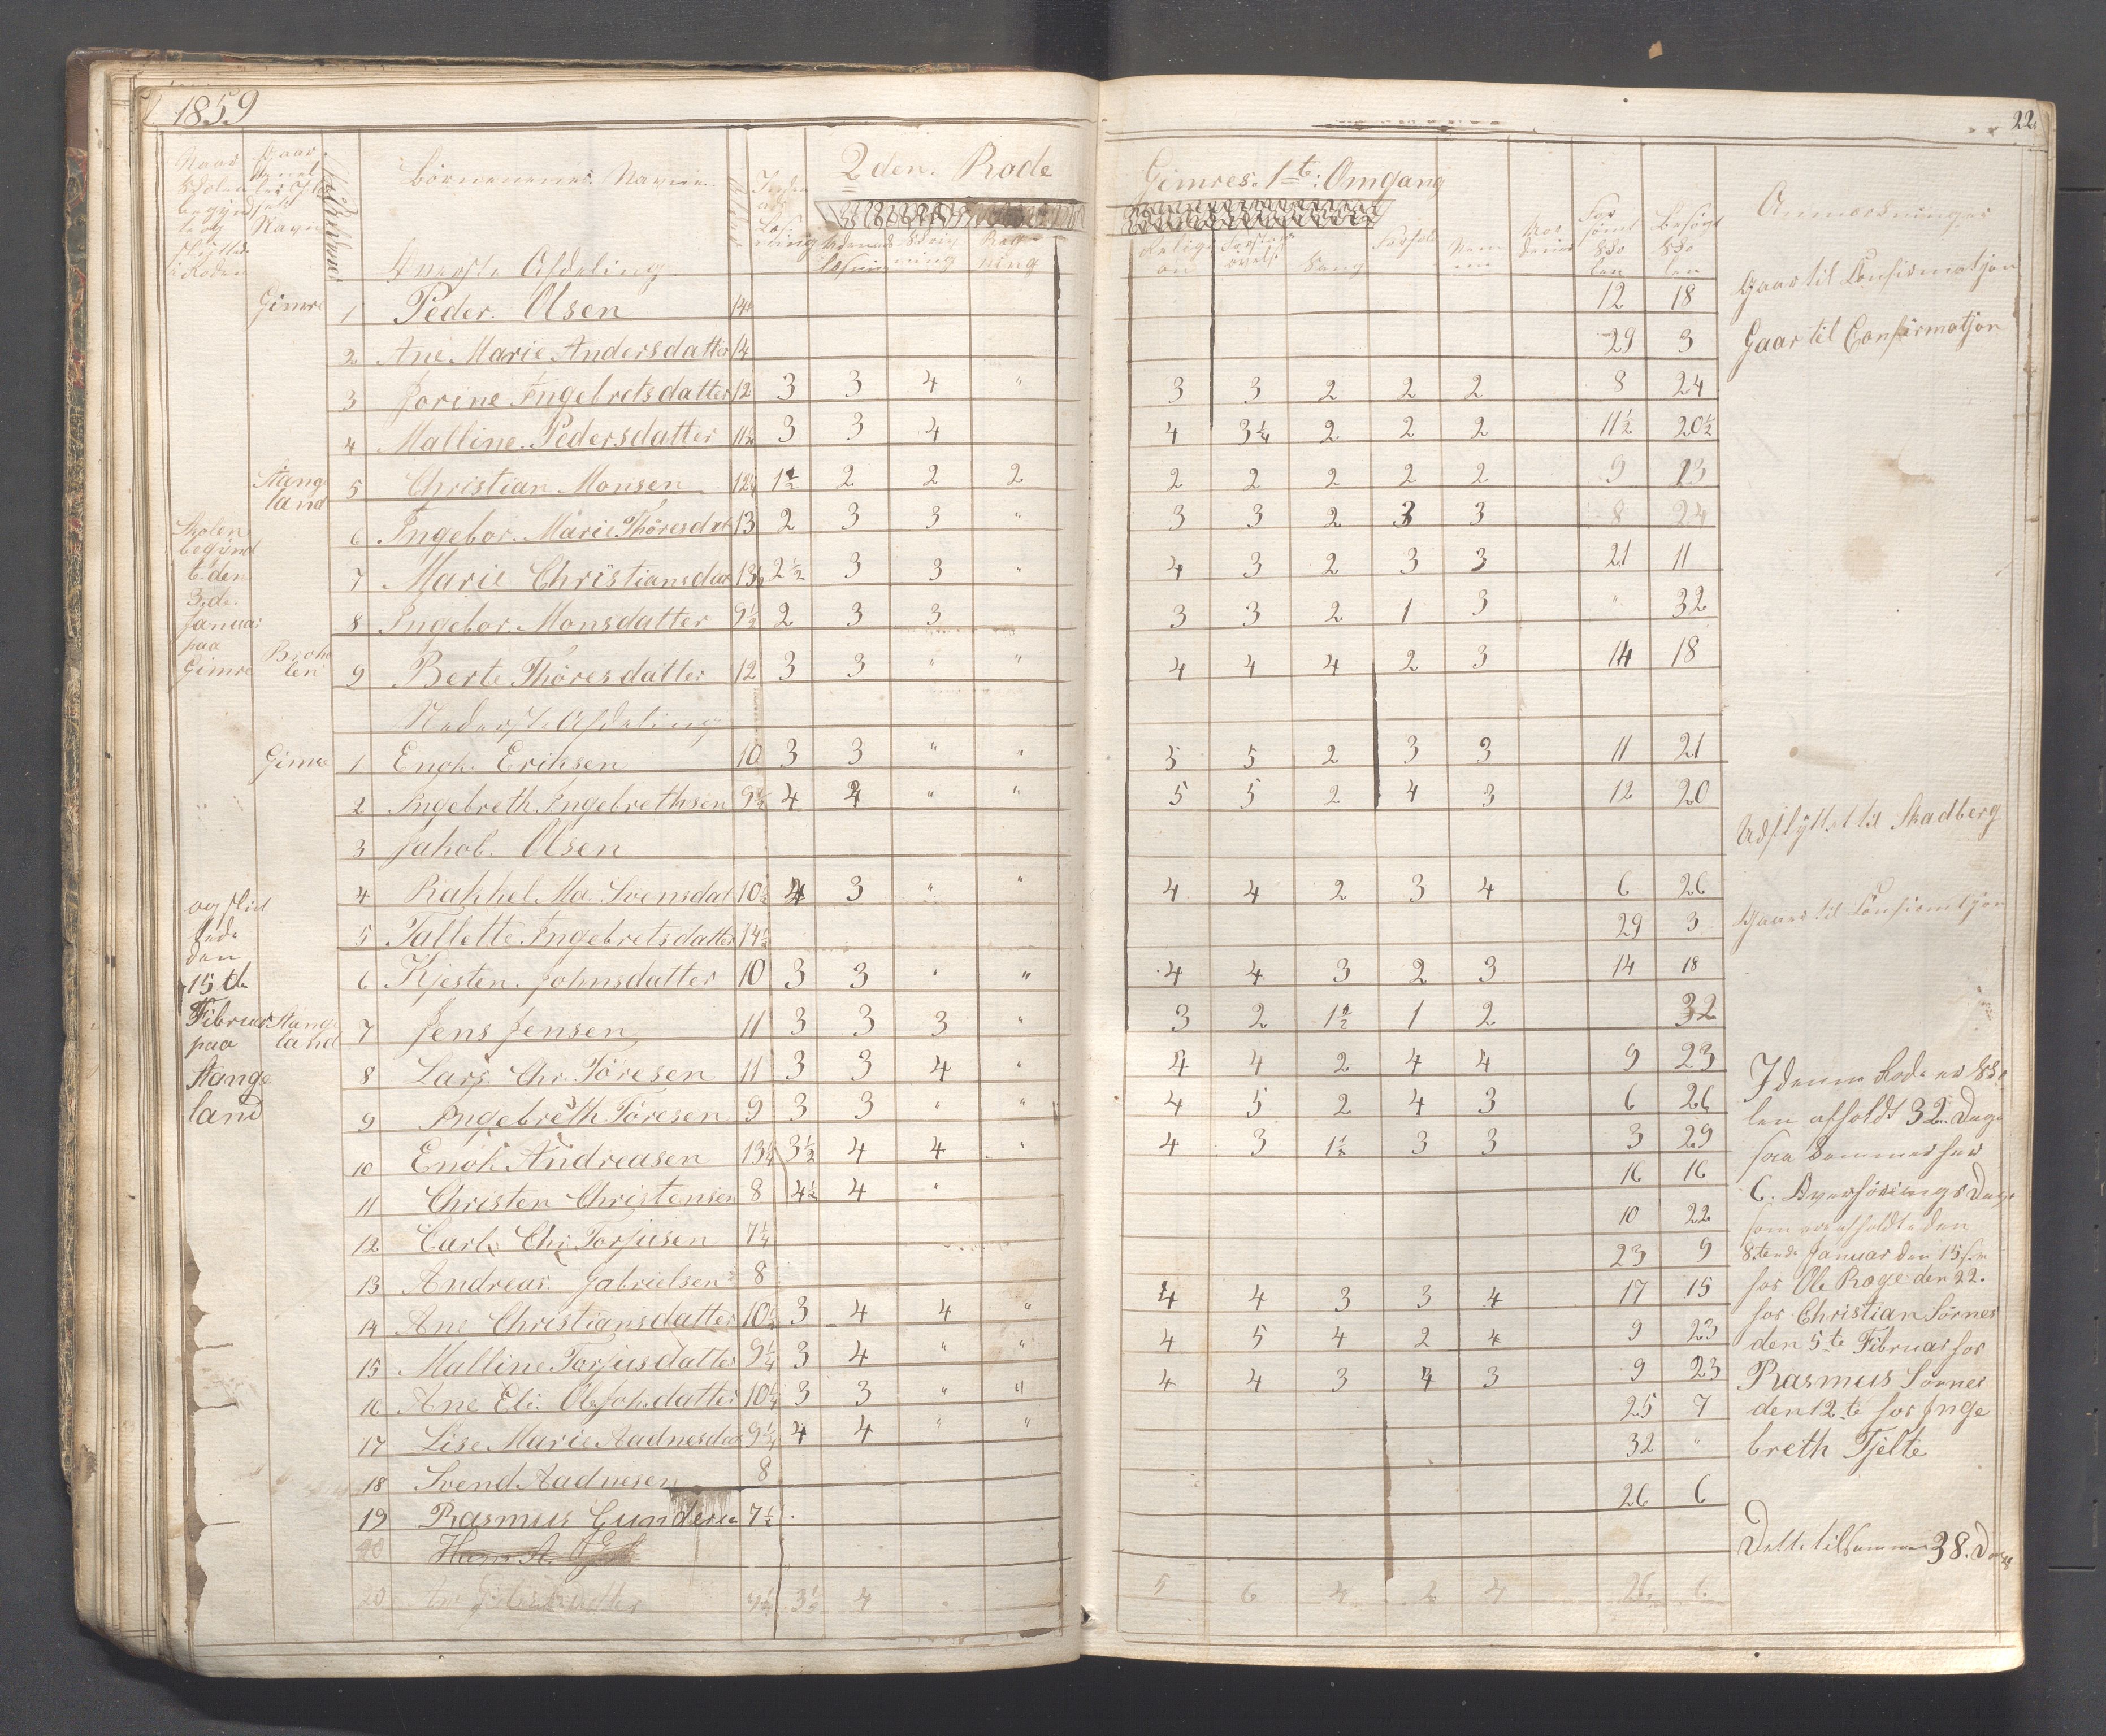 1859
22
2den. Rode
Gimres. 1te: Omgang
Børnenenes Navne
Anmerkninger
Øverste Afdeling
Gimre 1 Peder. Olsen 14 12 18 Gaar til Confirmatjon
2 Ane Marie Andersdatter 14 29 3 Gaar til Confirmatjon
3 Jorine Ingebretsdatter 12 3 3 4 " 3 3 2 2 2 8 24
4 Malline. Pedersdatter 11½ 3 3 4 4 3¼ 2 2 2 11½ 20½
Stange
land 5 Christian Monsen 12¼ 1½ 2 2 2 2 2 2 2 2 9 23
6 Ingebor. Marie Thøresdat 13 2 3 3 " 3 3 2 3 3 8 24
7 Marie Christiansdat 13½ 2½ 3 3 " 4 3 2 3 3 21 11
8 Ingebor. Monsdatter 9½ 2 3 3 3 3 2 1 3 " 32
9 Berte Thøresdatter 12 3 3 " " 4 4 4 2 3 14 18
Skolen
begynd
te den
3de.
Januar
paa
Gimre
Nederste Afdeling
Gimre 1 Enok. Eriksen 10 3 3 " " 5 5 2 3 3 11 21
2 Ingebreth. Ingebrethsen 9½ 4 4 " " 5 5 2 4 3 12 20
3 Jakob. Olsen Udflyttet til Skadberg
4 Rakkel Ma. Svensdat 10½ 4 3 " " 4 4 2 3 4 6 26
5 Tallette Ingebretsdatter 14½ 29 3 Gaar til Confirmatjon
6 Kjesten. Johnsdatter 10 3 3 " " 4 4 3 2 3 14 18
Stange
land 7 Jens Jensen 11 3 3 3 " 3 2 1½ 1 2 32
8 Lars. Chr. Tøresen 11 3 3 4 " 4 4 2 4 4 9 23
9 Ingebreth Tøresen 9 3 3 " " 4 5 2 4 3 6 26
10 Enok Andreasen 13¼ 3½ 4 4 " 4 3 1½ 3 3 3 29
11 Christen Christensen 8 4½ 4 " 16 16
12 Carl. Chr. Torjusen 7¼ 10 22
13 Andreas. Gabrielsen 8 23 9
14 Ane Christiansdatter 10½ 3 4 4 " 4 4 3 3 4 17 15
15 Malline Torjusdatter 9¼ 3 4 " " 4 5 4 2 4 9 23
16 Ane Eli. Ole Joh.datter 10¼ 3 3 " " 4 4 3 4 3 9 23
17 Lise Marie Aadnesdat 9¼ 4 4 " " 25 7
18 Svend Aadnesen 8 32 "
19 Rasmus Gundersen 7½ 26 6
20
20 9¼ 3½ 4 5 6 4 2 4 26 6
og slut
tede
den
15de
Februar
paa
Stange
land
I denne Rode er Sko
len afholdt 32. Dage
som
6. Dage
som er afholdte den
8tende Januar den 15
for Ole Røge den 22.
for Christian Sørnes
den 5te Februar for
Rasmus Sørnes
den 12te for Inge
breth Tjelte
Dette tilsammen 38. Dage